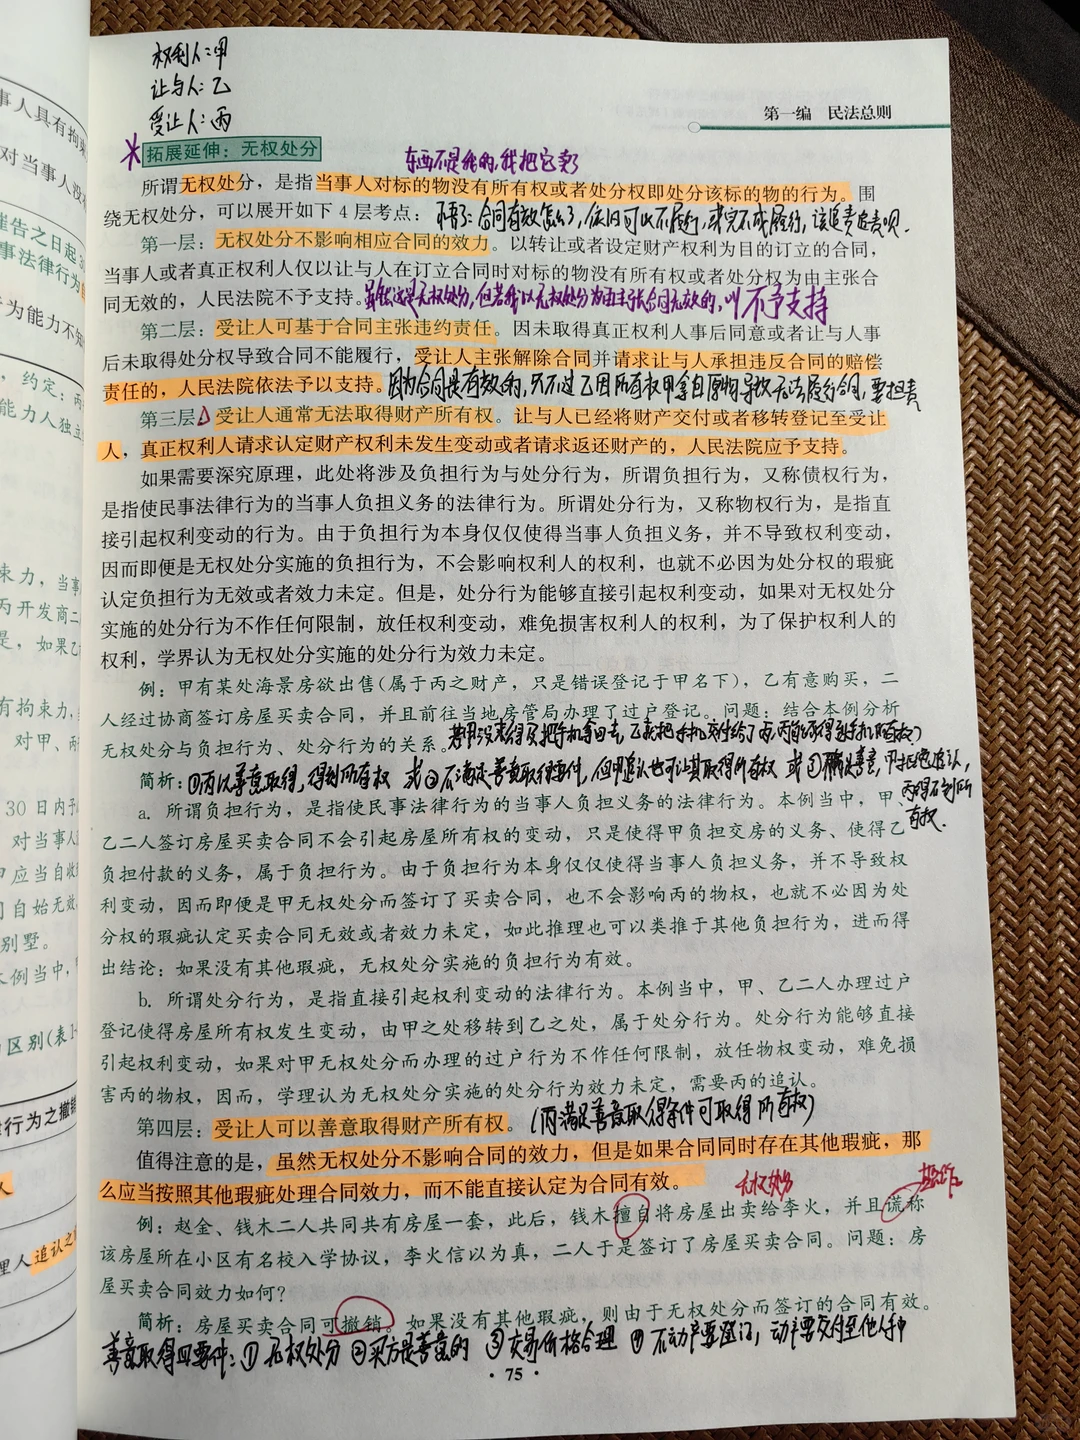 权利人：甲
让与人：乙
受让人：丙
第一编 民法总则
拓展延伸：无权处分
东西不是我的，我把它卖了
所谓无权处分，是指当事人对标的物没有所有权或者处分权即处分该标的物的行为。围
绕无权处分，可以展开如下 4 层考点：
合同有效怎么了，依旧可以不履行，来完不成履行，该追责追责呗．
第一层：无权处分不影响相应合同的效力。以转让或者设定财产权利为目的订立的合同，
当事人或者真正权利人仅以让与人在订立合同时对标的物没有所有权或者处分权为由主张合
同无效的，人民法院不予支持。
虽然这是无权处分，但若我以无权处分为由主张合同无效的，以不予支持
第二层：受让人可基于合同主张违约责任。因未取得真正权利人事后同意或者让与人事
后未取得处分权导致合同不能履行，受让人主张解除合同并请求让与人承担违反合同的赔偿
责任的，人民法院依法予以支持。
因为合同是有效的，只不过乙因所有权甲拿回原物导致无法履行合同，要担责
第三层：受让人通常无法取得财产所有权。让与人已经将财产交付或者移转登记至受让
人，真正权利人请求认定财产权利未发生变动或者请求返还财产的，人民法院应予支持。
如果需要深究原理，此处将涉及负担行为与处分行为，所谓负担行为，又称债权行为，
是指使民事法律行为的当事人负担义务的法律行为。所谓处分行为，又称物权行为，是指直
接引起权利变动的行为。由于负担行为本身仅仅使得当事人负担义务，并不导致权利变动，
因而即便是无权处分实施的负担行为，不会影响权利人的权利，也就不必因为处分权的瑕疵
认定负担行为无效或者效力未定。但是，处分行为能够直接引起权利变动，如果对无权处分
实施的处分行为不作任何限制，放任权利变动，难免损害权利人的权利，为了保护权利人的
权利，学界认为无权处分实施的处分行为效力未定。
例：甲有某处海景房欲出售（属于丙之财产，只是错误登记于甲名下），乙有意购买，二
人经过协商签订房屋买卖合同，并且前往当地房管局办理了过户登记。问题：结合本例分析
无权处分与负担行为、处分行为的关系。
若甲没来得及把手机拿回去，乙就把手机交付给了丙，丙能否得到手机所有权？
简析：
①丙以善意取得，得到所有权 或②不满足善意取得要件，但甲追认也可让其取得所有权 或③ 善意，甲拒绝追认，
丙得不到所
有权．
a. 所谓负担行为，是指使民事法律行为的当事人负担义务的法律行为。本例当中，甲、
乙二人签订房屋买卖合同不会引起房屋所有权的变动，只是使得甲负担交房的义务、使得乙
负担付款的义务，属于负担行为。由于负担行为本身仅仅使得当事人负担义务，并不导致权
利变动，因而即便是甲无权处分而签订了买卖合同，也不会影响丙的物权，也就不必因为处
分权的瑕疵认定买卖合同无效或者效力未定，如此推理也可以类推于其他负担行为，进而得
出结论：如果没有其他瑕疵，无权处分实施的负担行为有效。
b. 所谓处分行为，是指直接引起权利变动的法律行为。本例当中，甲、乙二人办理过户
登记使得房屋所有权发生变动，由甲之处移转到乙之处，属于处分行为。处分行为能够直接
引起权利变动，如果对甲无权处分而办理的过户行为不作任何限制，放任物权变动，难免损
害丙的物权，因而，学理认为无权处分实施的处分行为效力未定，需要丙的追认。
第四层：受让人可以善意取得财产所有权。（丙满足善意取得条件可取得所有权）
值得注意的是，虽然无权处分不影响合同的效力，但是如果合同同时存在其他瑕疵，那
么应当按照其他瑕疵处理合同效力，而不能直接认定为合同有效。
无权处分
例：赵金、钱木二人共同共有房屋一套，此后，钱木擅自将房屋出卖给李火，并且谎称
该房屋所在小区有名校入学协议，李火信以为真，二人于是签订了房屋买卖合同。问题：房
屋买卖合同效力如何？
简析：房屋买卖合同可撤销。如果没有其他瑕疵，则由于无权处分而签订的合同有效。
善意取得四要件：①无权处分 ②买方是善意的 ③交易价格合理 ④不动产要登记，动产要交付至他人手中
· 75 ·